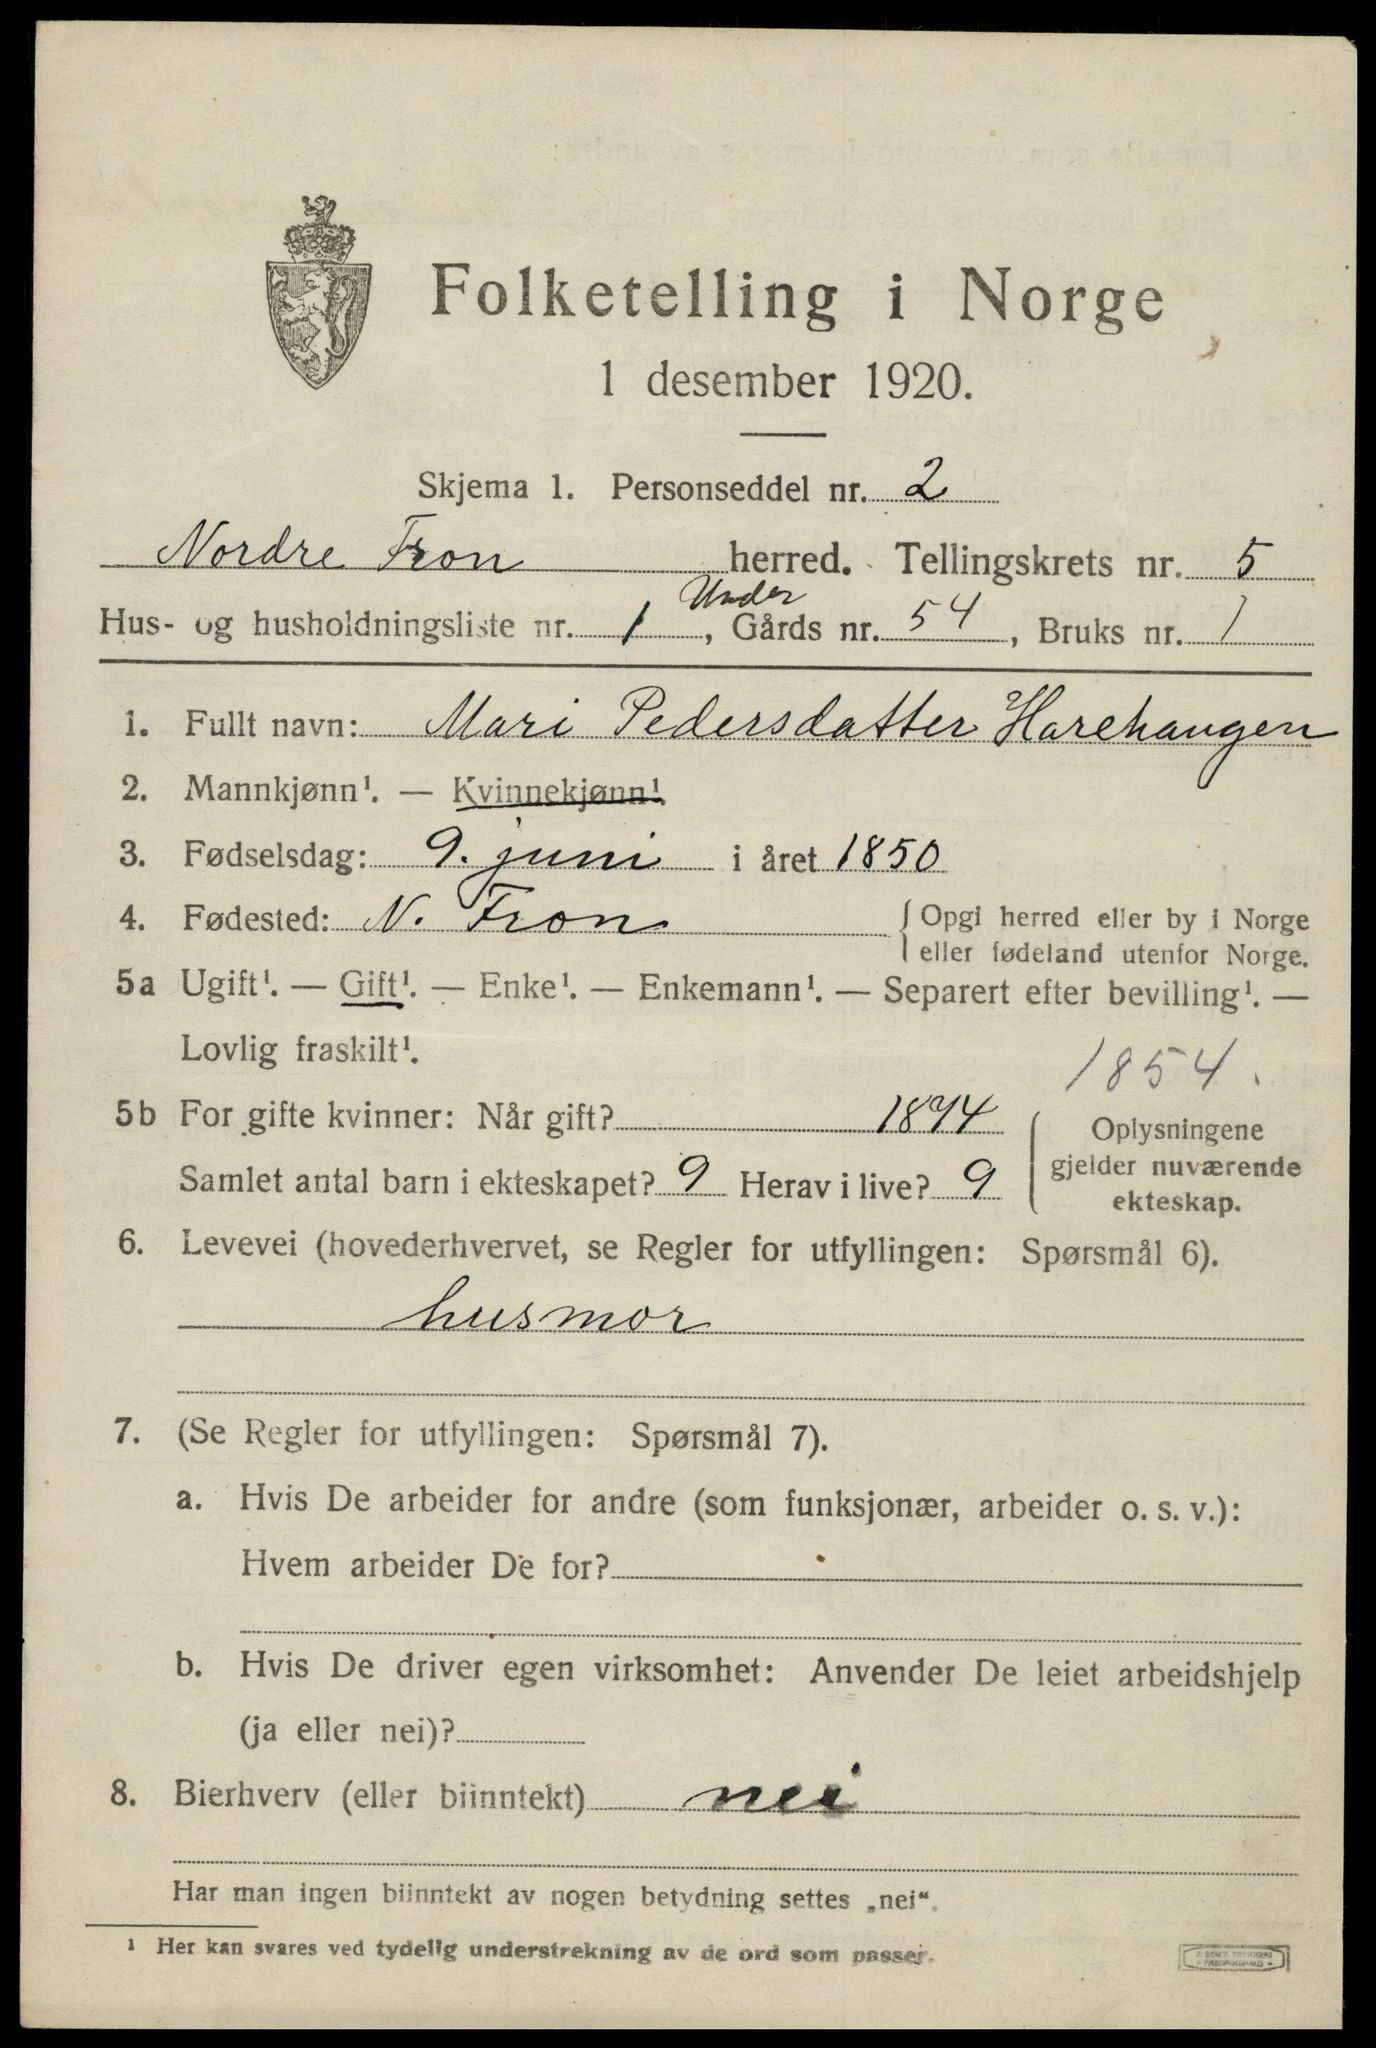 Folketelling i Norge
1 desember 1920.
Skjema 1. Personseddel nr. 2
Nordre Fron herred. Tellingskrets nr. 5
Under
Hus- og husholdningsliste nr. 1, Gårds nr. 54, Bruks nr. 1
1. Fullt navn: Mari Pedersdatter Harehaugen
2. Mannkjønn¹. — Kvinnekjønn¹.
3. Fødselsdag: 9. juni i året 1850
4. Fødested: N. Fron { Opgi herred eller by i Norge
eller fødeland utenfor Norge.
5a Ugift¹. — Gift¹. — Enke¹. — Enkemann¹. — Separert efter bevilling¹. —
Lovlig fraskilt¹.
1854.
5b For gifte kvinner: Når gift? 1874
Samlet antal barn i ekteskapet? 9 Herav i live? 9
{ Oplysningene
gjelder nuværende
ekteskap.
6. Levevei (hovederhvervet, se Regler for utfyllingen: Spørsmål 6).
husmor
7. (Se Regler for utfyllingen: Spørsmål 7).
a. Hvis De arbeider for andre (som funksjonær, arbeider o. s. v.):
Hvem arbeider De for?
b. Hvis De driver egen virksomhet: Anvender De leiet arbeidshjelp
(ja eller nei)?
8. Bierhverv (eller biinntekt) nei
Har man ingen biinntekt av nogen betydning settes „nei“.
¹ Her kan svares ved tydelig understrekning av de ord som passer.